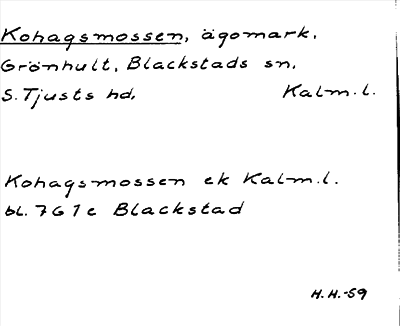 Kohagsmossen, ägomark,
Grönhult, Blackstads sn,
S. Tjusts hd, Kalm.l.
Kohagsmossen ek Kalm.l.
bl. 7G1c Blackstad
H.H.-59